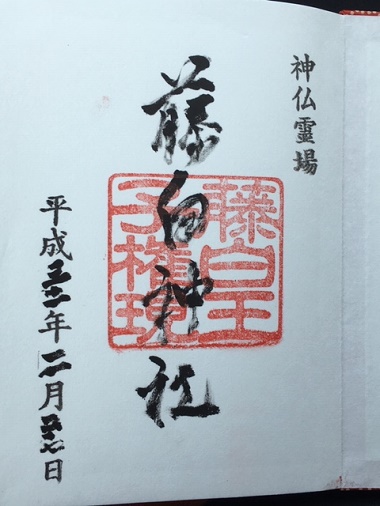 神仏霊場
藤白神社
藤白王
子権現
平成三十一年二月廿七日